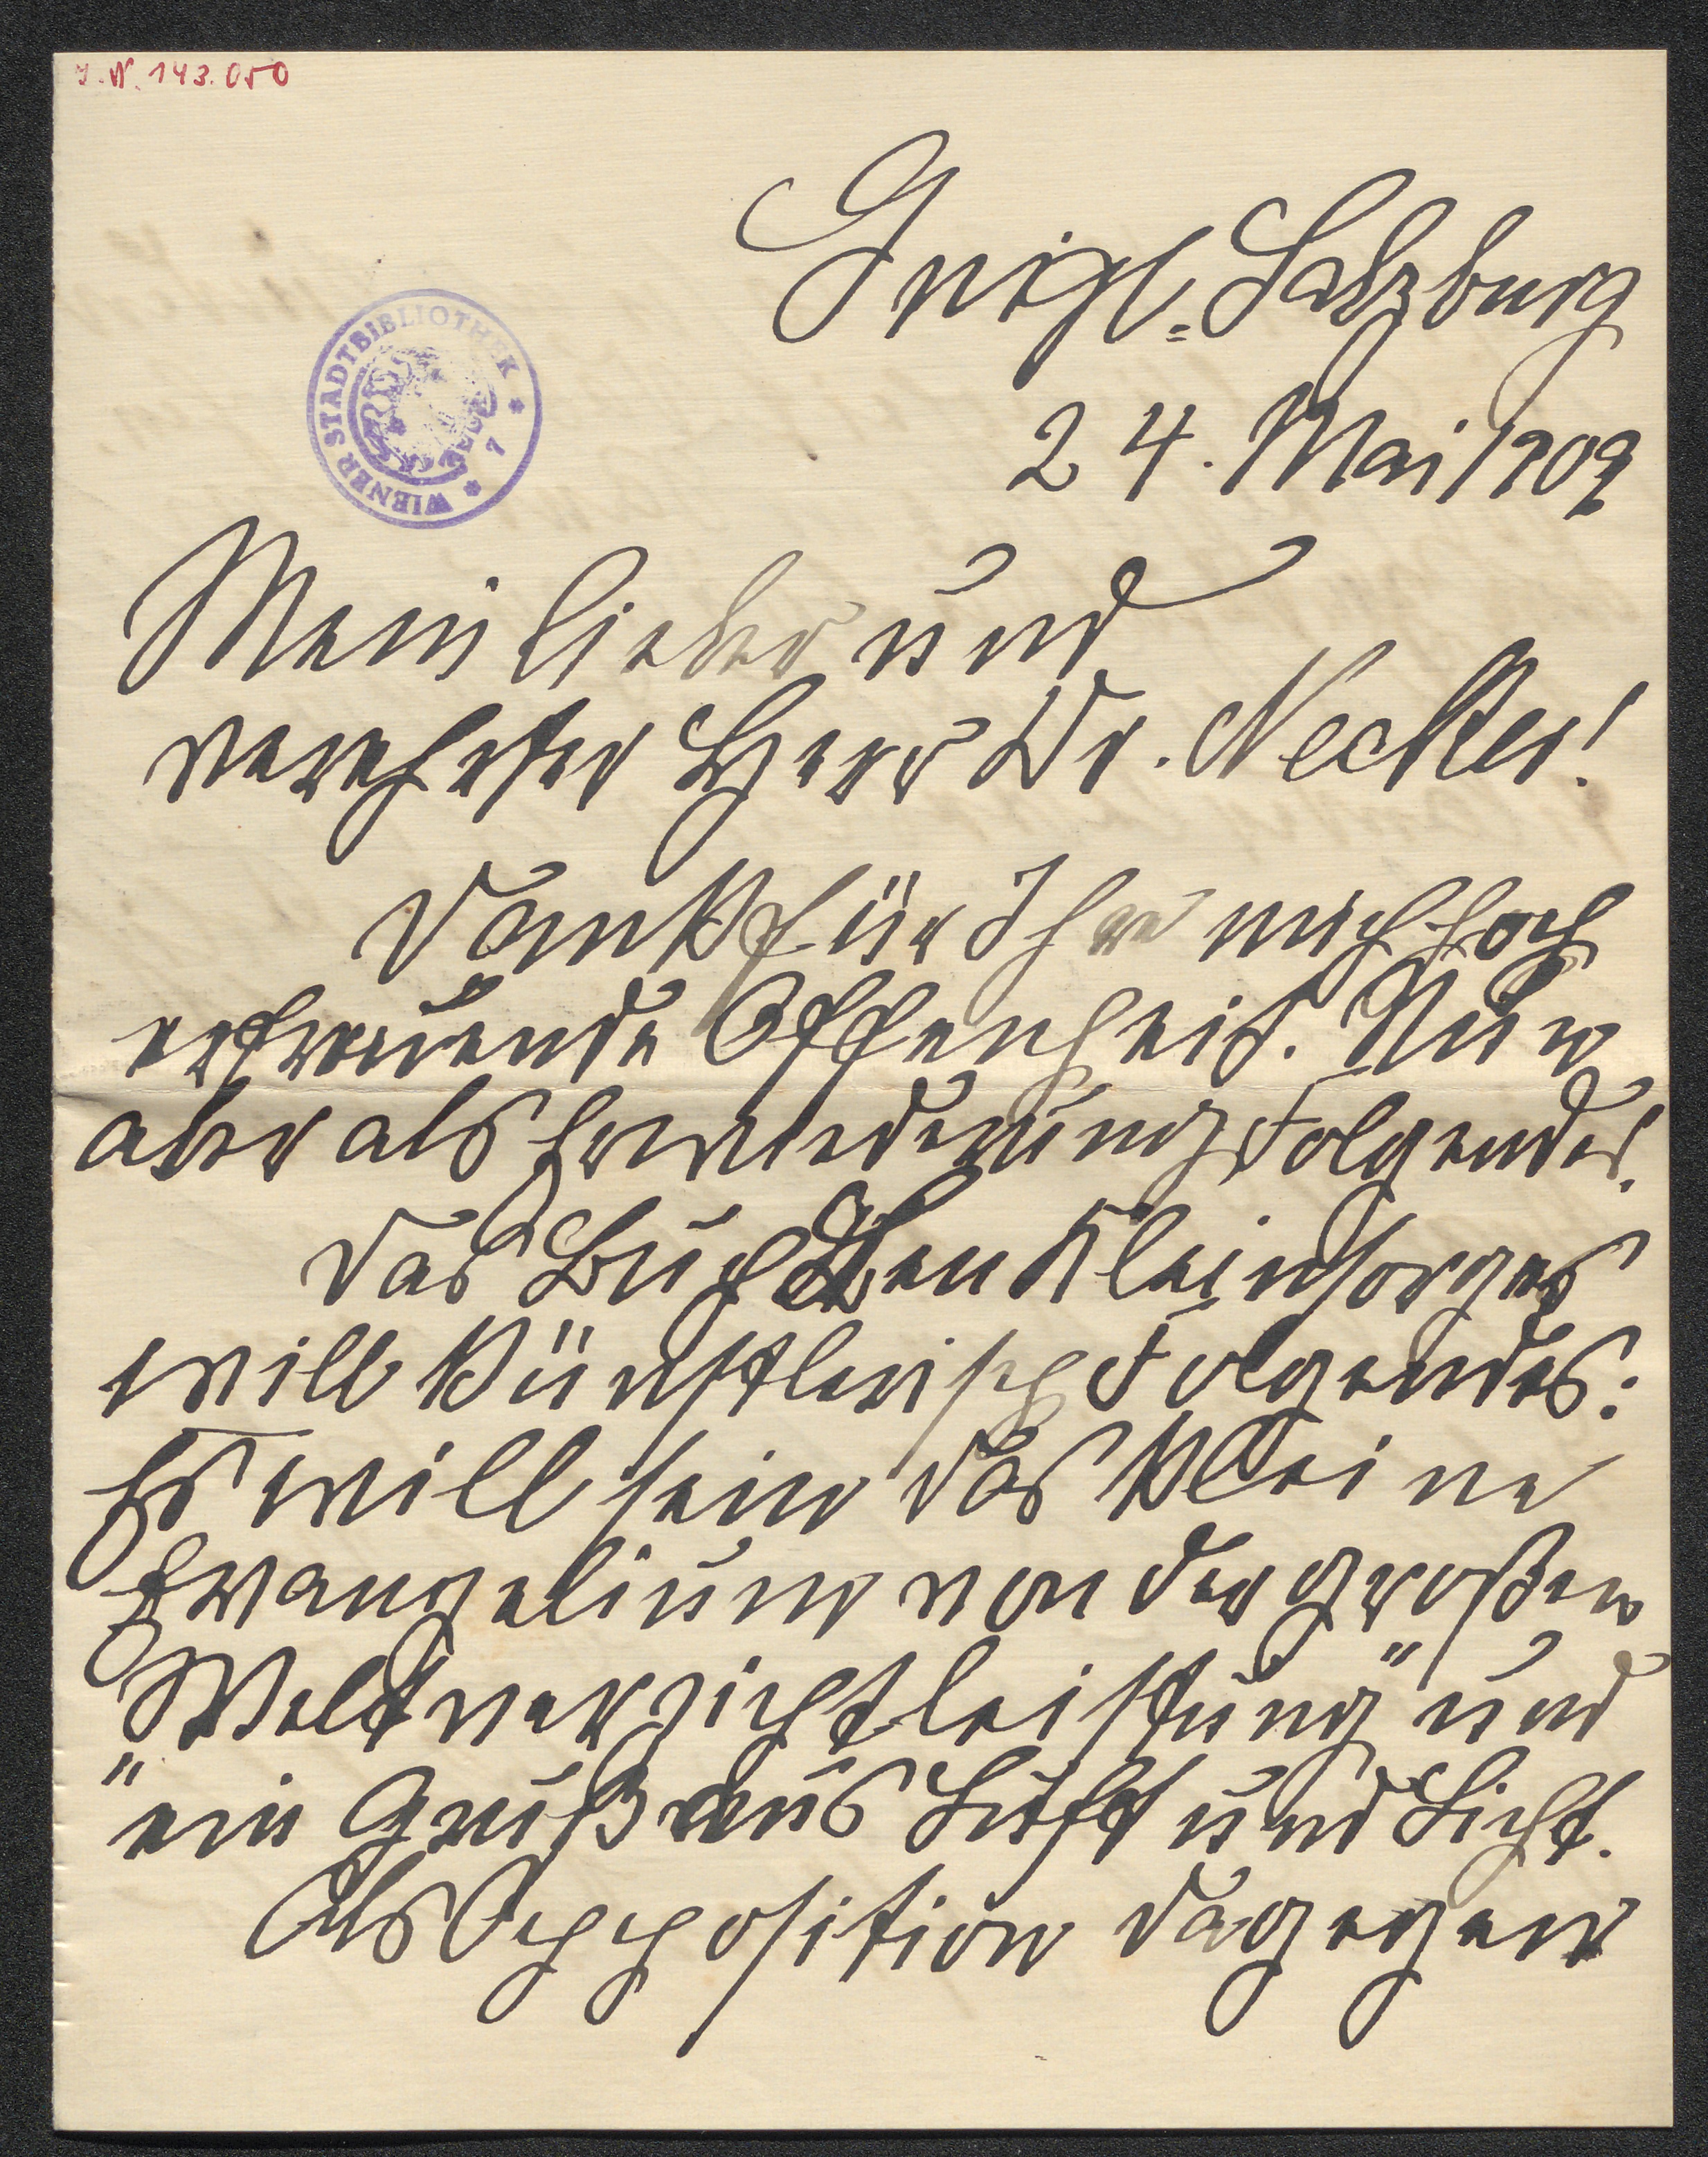 I. N. 143.050
Gnigl-Salzburg
WIENER STADTBIBLIOTHEK * 7 *
24. Mai 1909
Mein lieber und
verehrter Herr Dr. Necker!
Dank für Ihre mich hoch
erfreuende Offenheit. Nun
aber als Erwiederung Folgendes!
Das Buch des Kleinsorges
will künstlerisch Folgendes:
Es will sein das kleine
Evangelium von der großen
"Weltverzichtleistung" und
"ein Gruß aus Luft und Licht.
Als Opposition dagegen